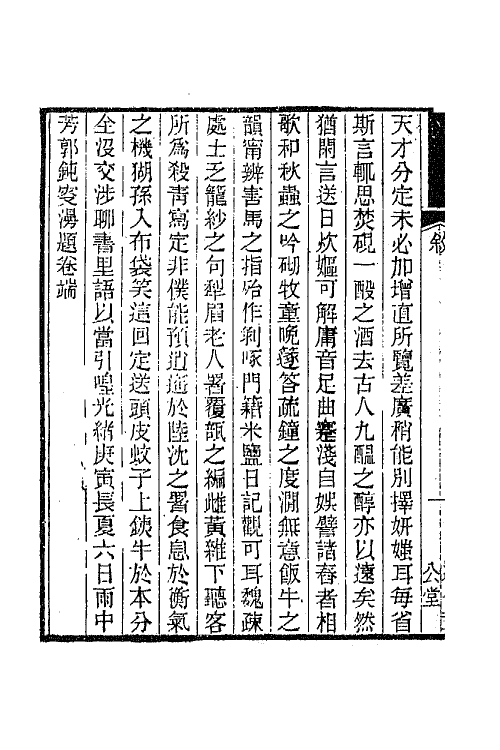 天才分定未必加增直所覽差廣稍能別擇妍媸耳每省
斯言輒思焚硯一酘之酒去古人九醞之醇亦以遠矣然
猶閑言送日炊嫗可解庸音足曲蹇淺自娛譬諸舂者相
歌和秋蟲之吟砌牧童晩篴答疏鐘之度澗無意飯牛之
韻甯辨害馬之指殆作剝啄門籍米鹽日記觀可耳魏疎
處士乏籠紗之句犁眉老人署覆瓿之編雌黃雜下聽客
所爲殺靑寫定非僕能預逍遙於陸沈之署食息於衡氣
之機猢孫入布袋笑這回定送頭皮蚊子上鐵牛於本分
全沒交涉聊書里語以當引喤光緖庚寅長夏六日雨中
芳郭鈍叜漫題卷端
敘
一
公堂